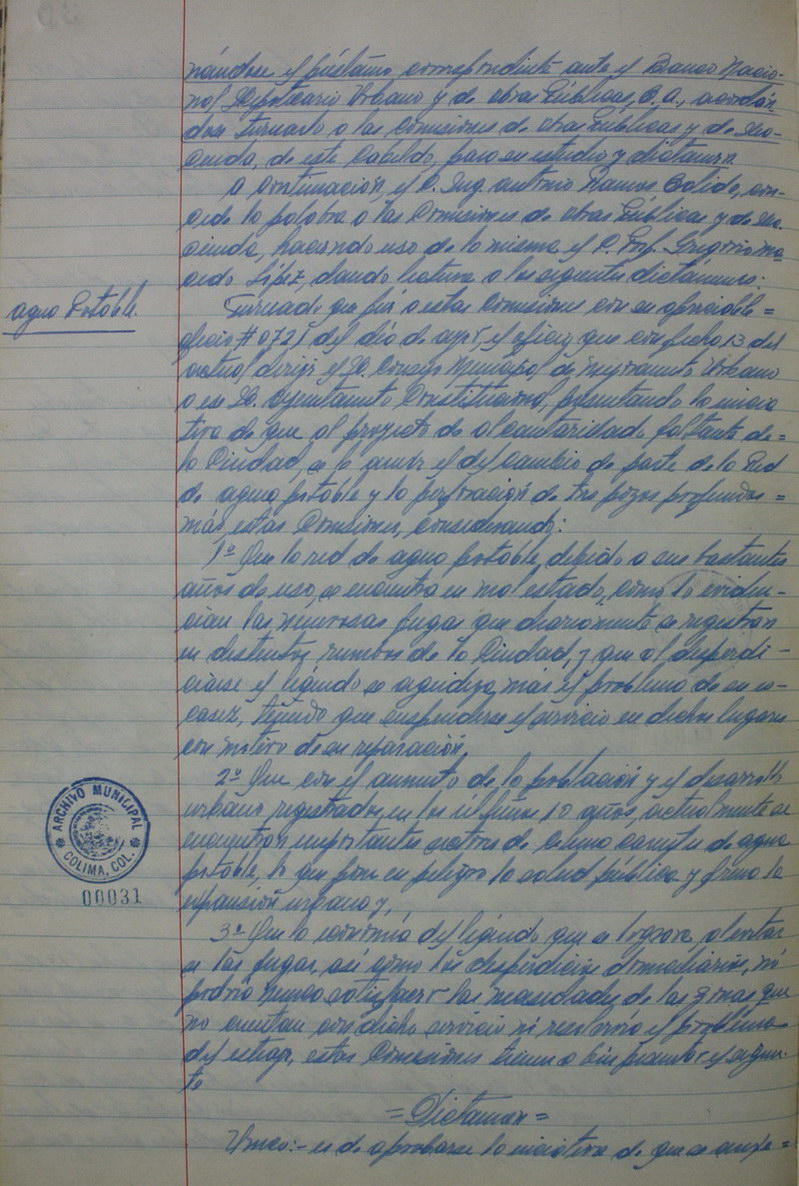 nándose el préstamo correspondiente ante el Banco Nacio-
nal Hipotecario Urbano y de Obras Públicas, S. A., acordán
dose turnarlo a las Comisiones de Obras Públicas y de Ha-
cienda, de este Cabildo, para su estudio y dictamen.
A continuación, el C. Ing. Antonio Ramos Salido, con-
cede la palabra a las Comisiones de Obras Públicas y de Ha
cienda, haciendo uso de la misma el C. Prof. Gregorio Ma
cedo López, dando lectura a los siguientes dictámenes:
Agua Potable.
Turnado que fué a estas Comisiones con su apreciable =
oficio # 0721 del día de ayer, el oficio que con fecha 13 del
actual dirige el H. Consejo Municipal de Mejoramiento Urbano
a ese H. Ayuntamiento Constitucional, presentando la inicia
tiva de que al proyecto de alcantarillado faltante de-
la Ciudad, se le anexe el del cambio de parte de la Red
de agua potable y la perforación de tres pozos profundos =
más, estas Comisiones, considerando:
1º Que la red de agua potable, debido a sus bastantes
años de uso, se encuentra en mal estado, como lo eviden-
cian las numerosas fugas que diariamente se registran
en distintos rumbos de la Ciudad, y que al desperdi-
ciarse el líquido se agudiza más el problema de su es-
casez, teniendo que suspenderse el servicio en dichos lugares
con motivo de su reparación,
2º Que con el aumento de la población y el desarrollo
urbano registrados en los últimos 10 años, actualmente se
encuentran importantes sectores de Colima carentes de agua
potable, lo que pone en peligro la salud pública y frena la
expansión urbana y,
ARCHIVO MUNICIPAL
COLIMA, COL.
00031
3º Que la economía del líquido que se lograra al evitar
se las fugas, así como los desperdicios domiciliarios, no
podría nunca satisfacer las necesidades de las zonas que
no cuentan con dicho servicio ni resolvería el problema
del estiaje, estas Comisiones tienen a bien presentar el siguien-
te
= Dictamen =
Unico:- es de aprobarse la iniciativa de que se anexe =